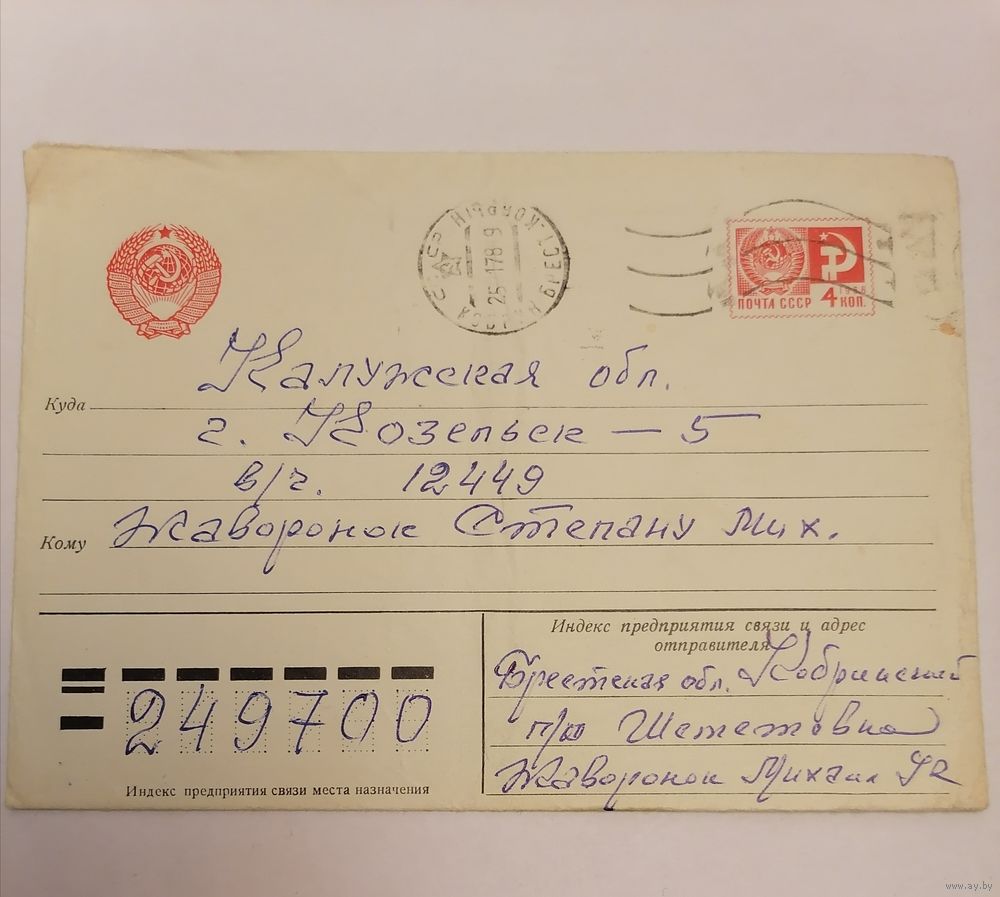 25-1178 9
ПОЧТА СССР 4 КОП.
1966
Калужская обл.
Куда
г. Козельск — 5
в/ч. 12449
Кому Жаворонок Степану Мих.
Индекс предприятия связи и адрес
отправителя
Брестская обл. Кобринский
п/о
Жаворонок Михаил
249700
Индекс предприятия связи места назначения
www.ay.by